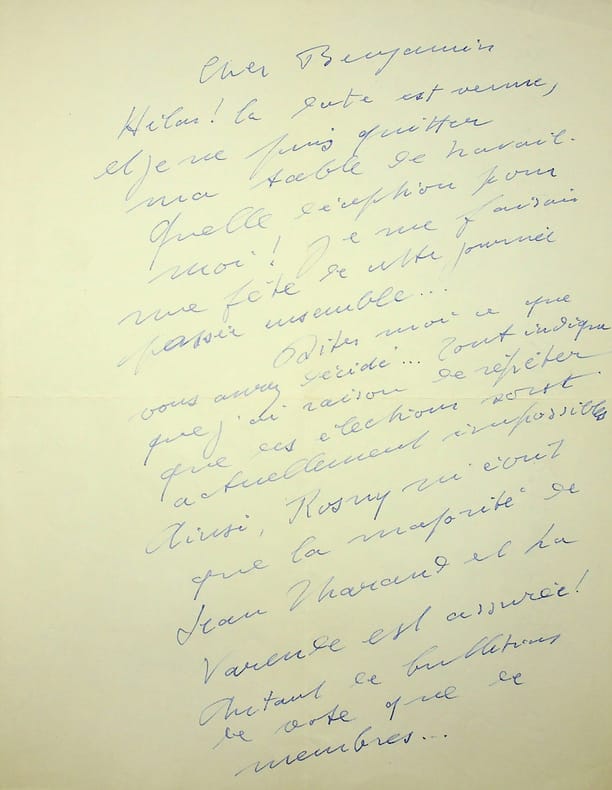 Cher Benjamin
Hélas! la date est venue,
et je ne puis quitter
ma table de travail.
Quelle déception pour
moi! Je me faisais
une fête de cette journée
passée ensemble...
Dites moi ce que
vous aurez décidé... Tout indique
que j'ai raison de répéter
que ces élections sont
actuellement impossibles
Ainsi, Rosny m'écrit
que la majorité de
Jean et La
Varende est assurée!
Autant de bulletins
de vote que de
membres...